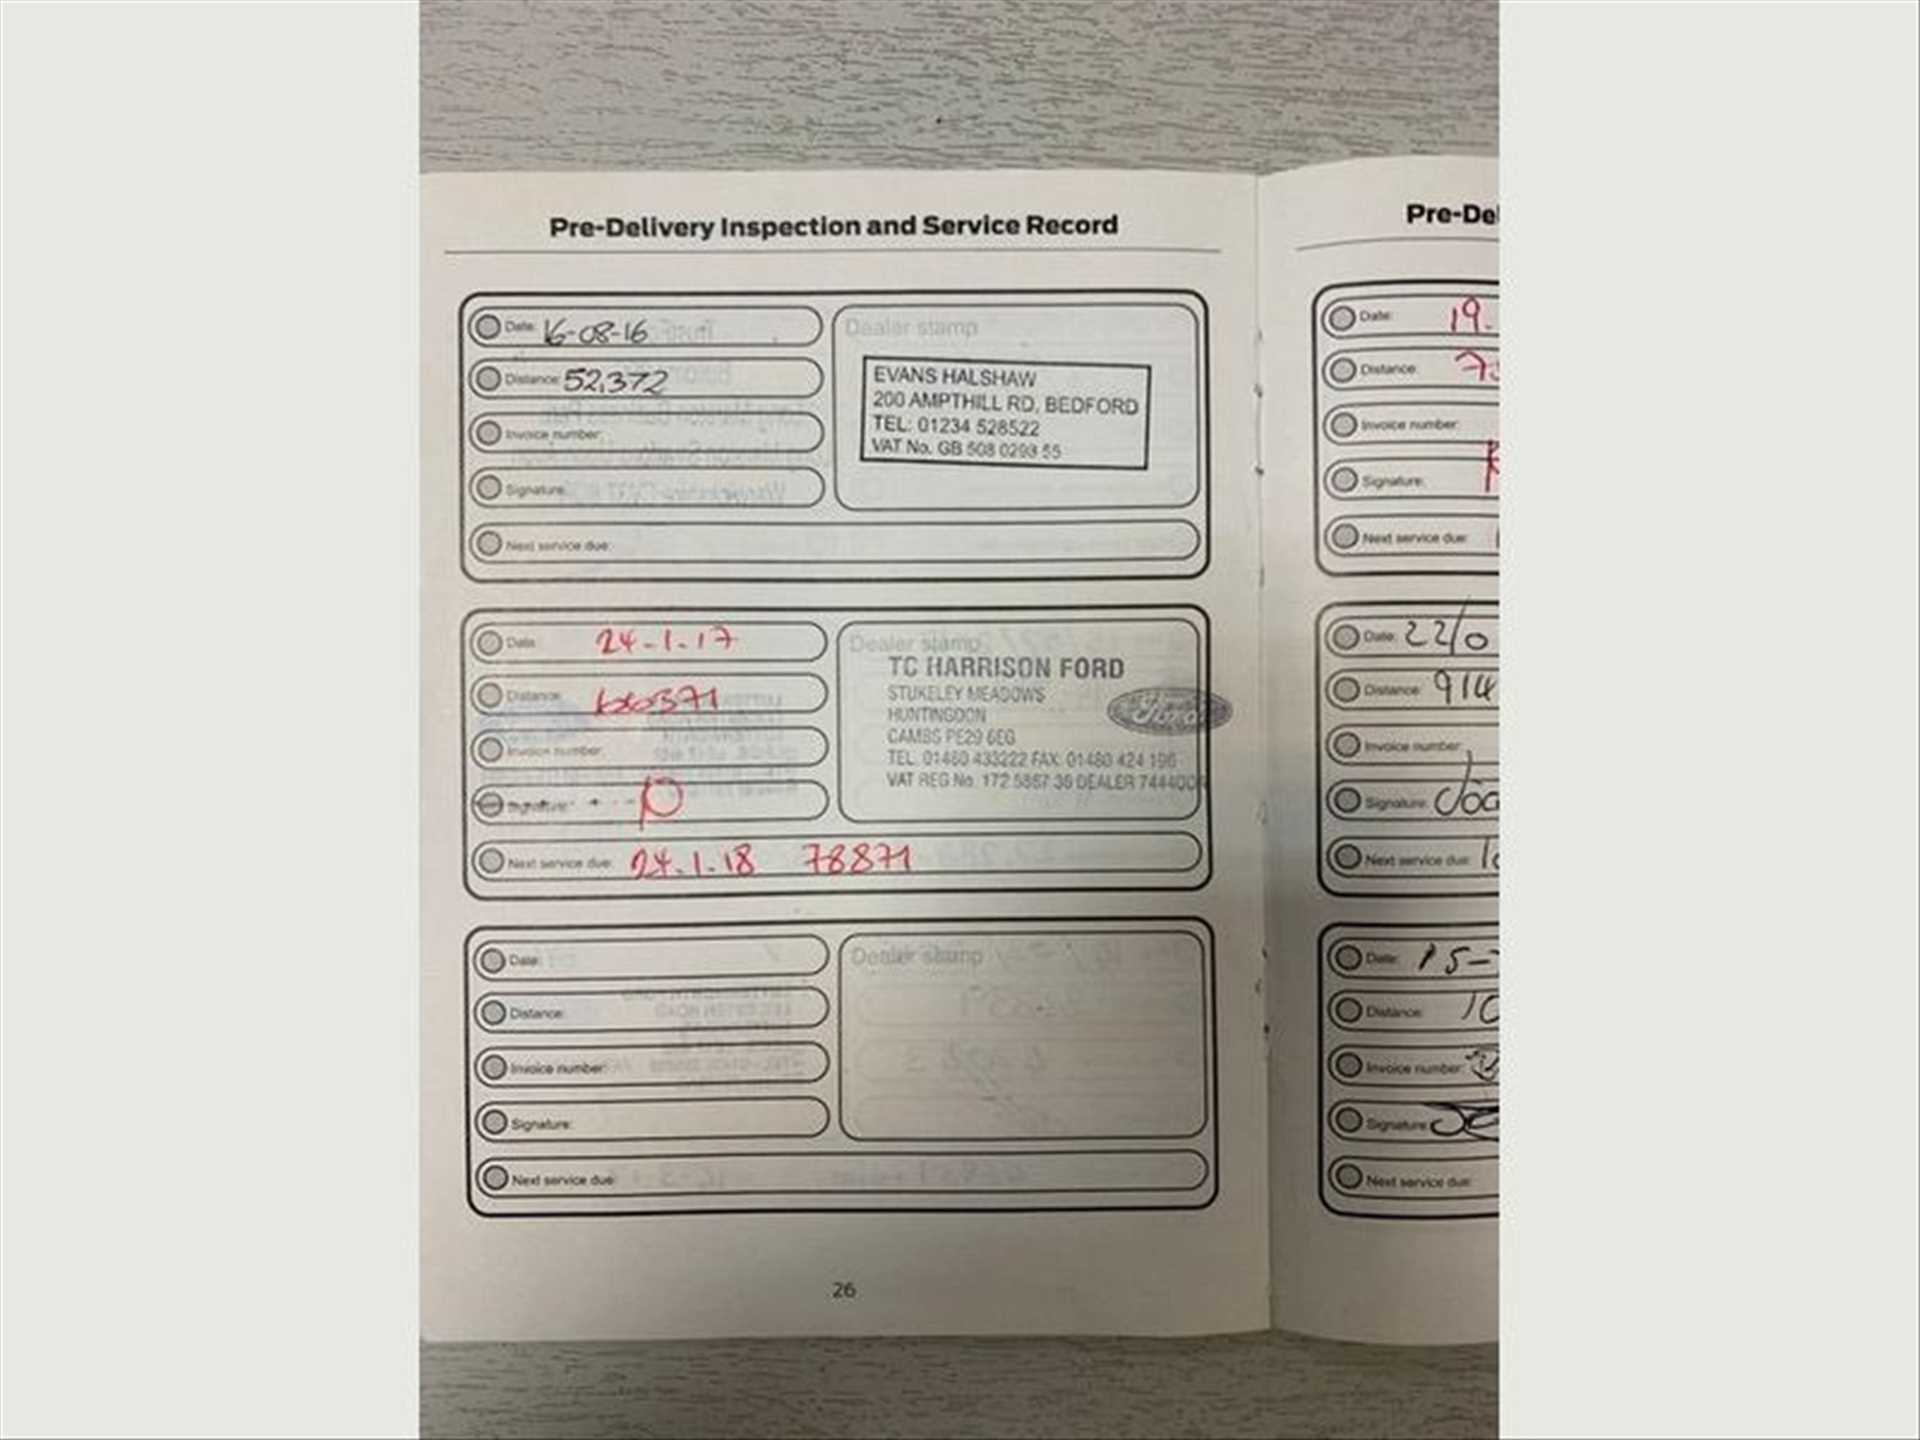 Pre-Delivery Inspection and Service Record
Date: 16-08-16
Distance: 52,372
Invoice number:
Signature:
Next service due:
Dealer stamp
EVANS HALSHAW
200 AMPTHILL RD, BEDFORD
TEL: 01234 528522
VAT No. GB 508 0293 55
Date: 24-1-17
Distance:
Invoice number:
Signature:
Next service due: 24.1.18 78871
Dealer stamp
TC HARRISON FORD
STUKELEY MEADOWS
HUNTINGDON
CAMBS PE29 6EG
TEL: 01480 433222 FAX: 01480 424 196
VAT REG No. 172 5867 36 DEALER
Ford
Date:
Distance:
Invoice number:
Signature:
Next service due:
Dealer stamp
26
Pre-Del
Date: 19.
Distance:
Invoice number:
Signature:
Next service due:
Date: 22/0
Distance: 914
Invoice number:
Signature:
Next service due:
Date: 15-
Distance: 10
Invoice number:
Signature:
Next service due: